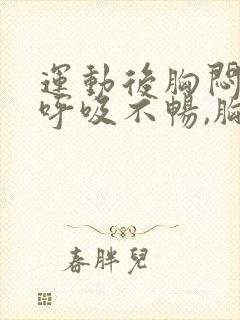 運動後胸悶
呼吸不暢,胸
春胖兒